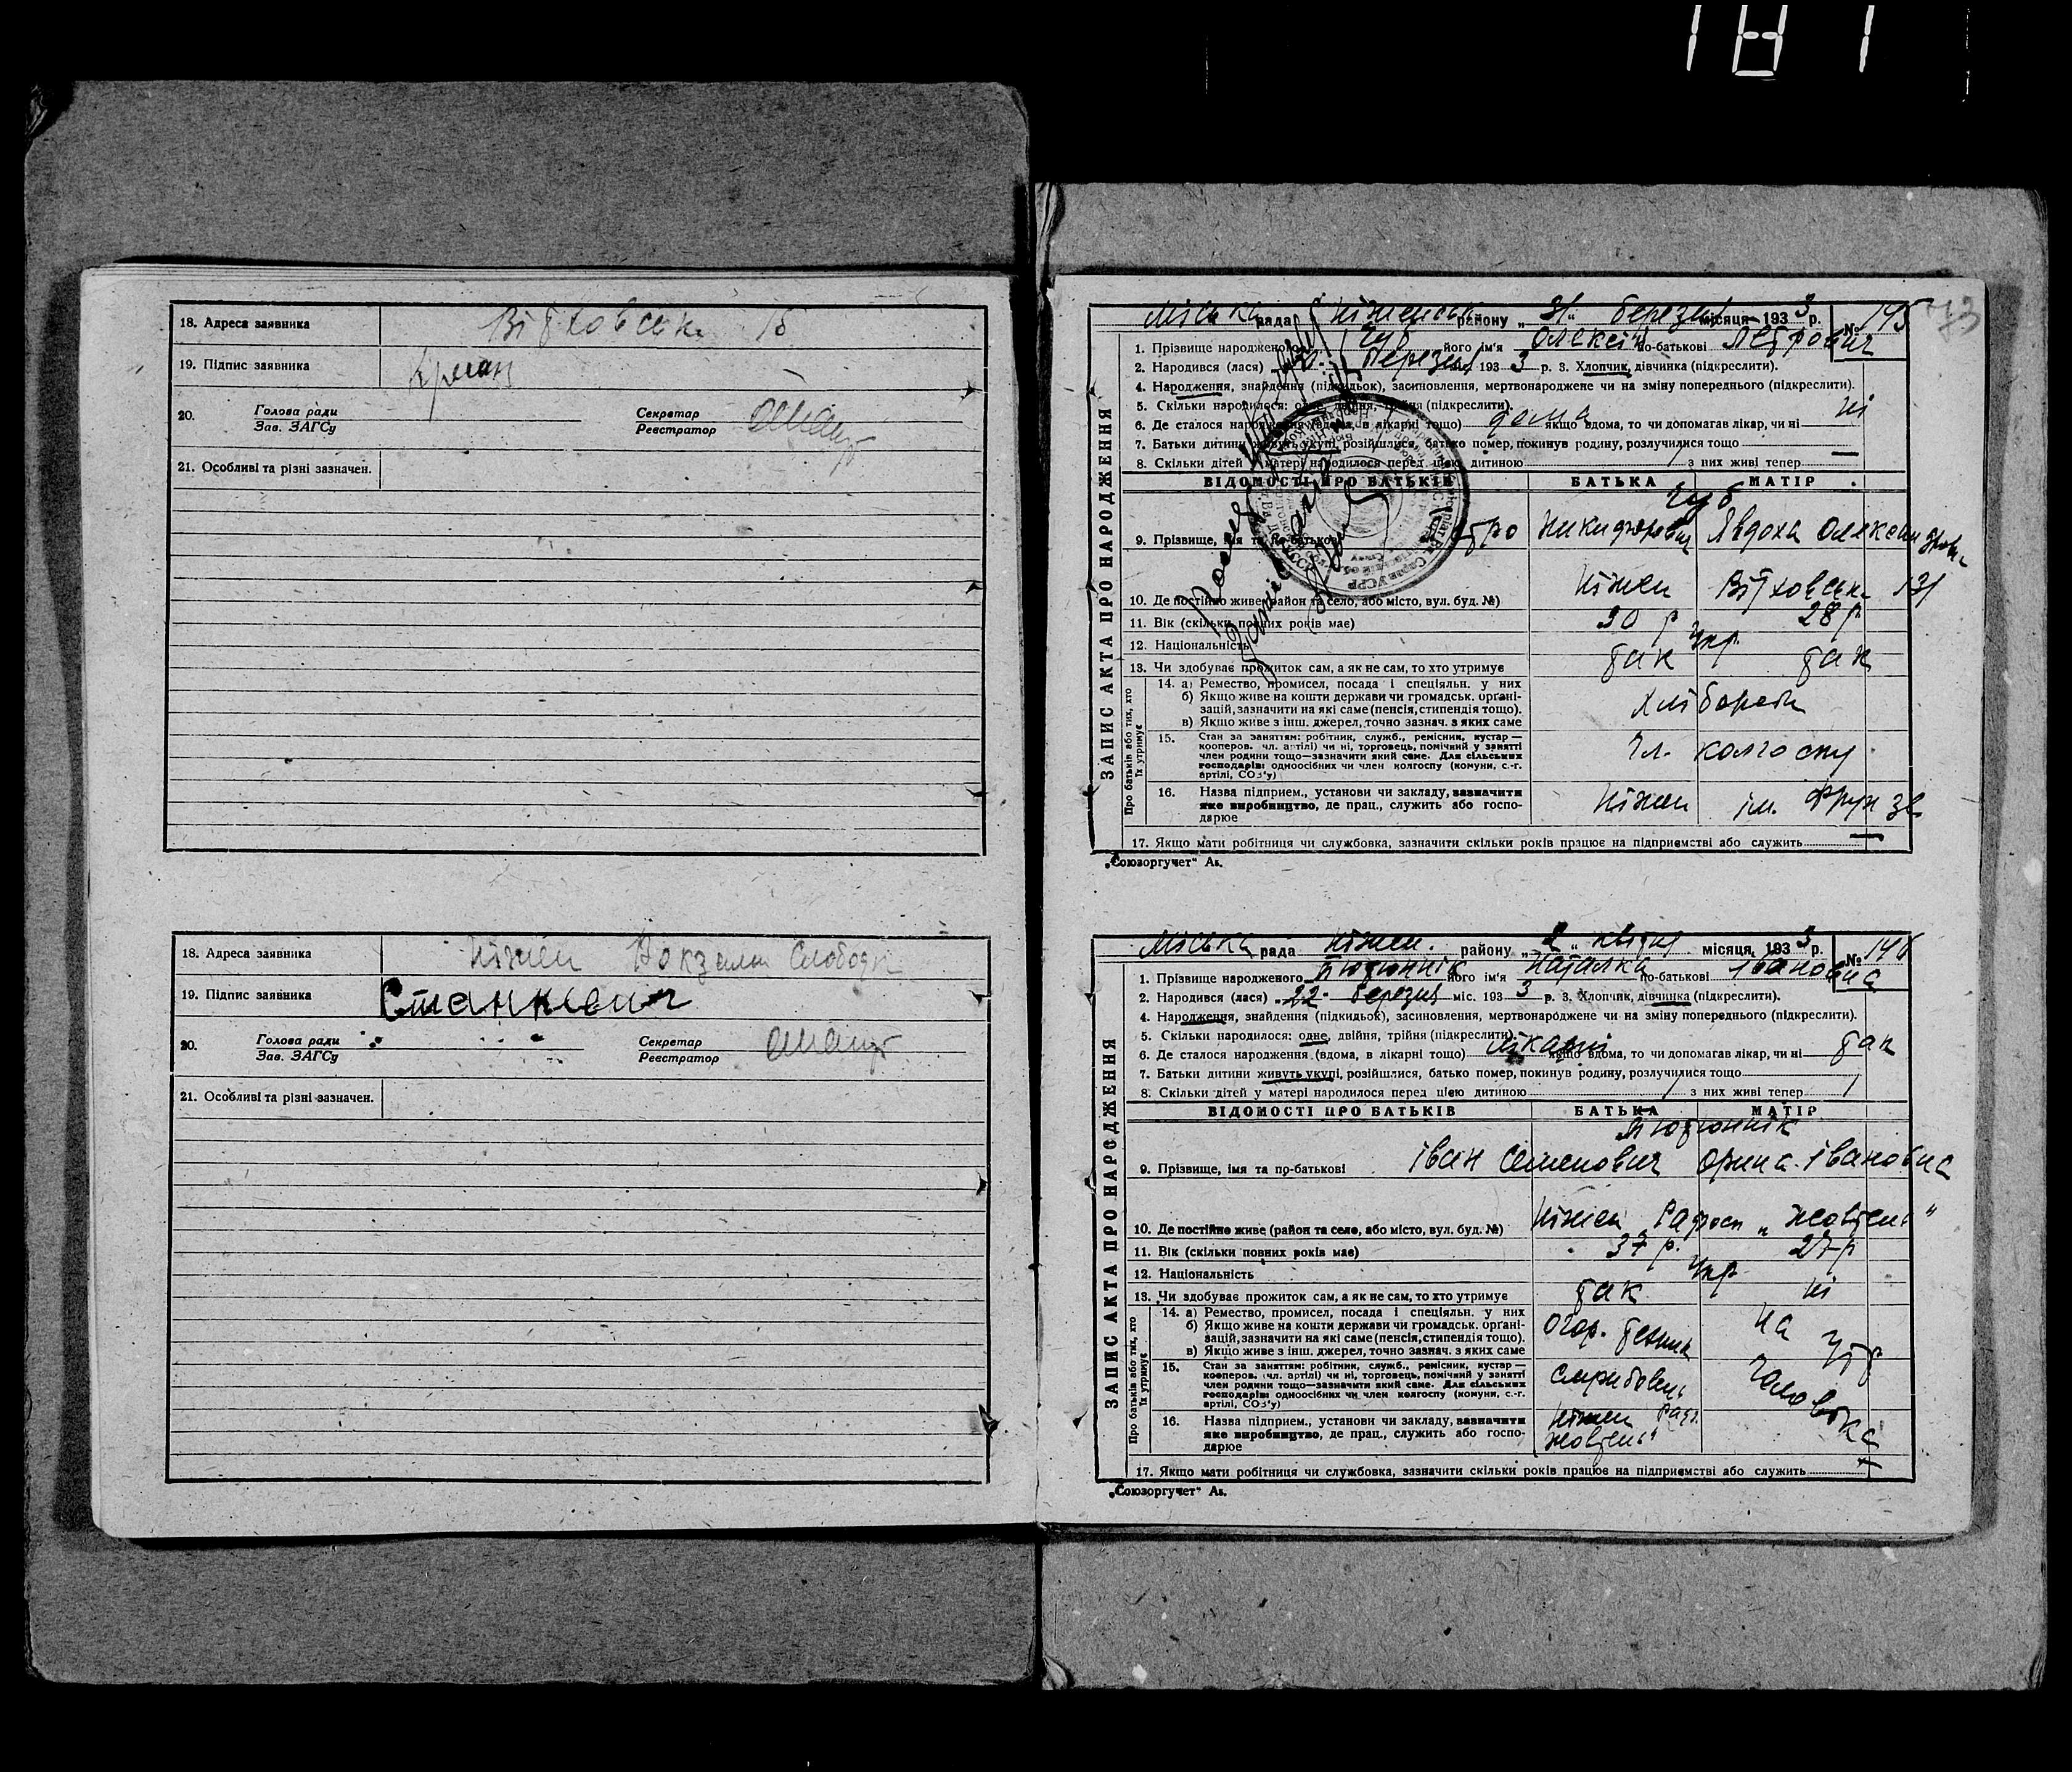 181
18. Адреса заявника Вітховськ. 15
19. Підпис заявника
20. Голова ради Зав. ЗАГСу Секретар Реєстратор
21. Особливі та різні зазначен.
18. Адреса заявника Ніжен Вокзальн Слободк
19. Підпис заявника Станкевич
20. Голова ради Зав. ЗАГСу Секретар Реєстратор
21. Особливі та різні зазначен.
73
ЗАПИС АКТА ПРО НАРОДЖЕННЯ
Міська рада Ніженськ району „31“ березня місяця 1933 р. № 195
1. Прізвище народженого Губ його ім'я Олексій по-батькові Петрович
2. Народився (лася) березня міс. 1933 р. 3. Хлопчик, дівчинка (підкреслити).
4. Народження, знайдення (підкидьок), засиновлення, мертвонароджене чи на зміну попереднього (підкреслити).
5. Скільки народилося: одне, двійня, трійня (підкреслити).
6. Де сталося народження (вдома, в лікарні тощо) дома якщо вдома, то чи допомагав лікар, чи ні ні
7. Батьки дитини живуть укупі, розійшлися, батько помер, покинув родину, розлучилися тощо —
8. Скільки дітей у матері народилося перед цією дитиною / з них живі тепер
ВІДОМОСТІ ПРО БАТЬКІВ БАТЬКА МАТІР
Губ
9. Прізвище, імя та по-батькові Петро Никифорович Явдоха Олександровн
10. Де постійно живе (район та село, або місто, вул. буд. №) Ніжен Вітховськ. 131
11. Вік (скільки повних років має) 30 р 28 р.
12. Національність Укр.
13. Чи здобуває прожиток сам, а як не сам, то хто утримує так так
Про батьків або тих, хто їх утримує
14. а) Ремество, промисел, посада і спеціяльн. у них
б) Якщо живе на кошти держави чи громадськ. організацій, зазначити на які саме (пенсія, стипендія тощо).
в) Якщо живе з інш. джерел, точно зазнач. з яких саме
хлібороби
15. Стан за заняттям: робітник, служб., ремісник, кустар —
кооперов. чл. артілі) чи ні, торговець, помічний у занятті
член родини тощо—зазначити який саме. Для сільських
господарів: одноосібних чи член колгоспу (комуни, с.-г.
артілі, СОЗ'у)
Чл. колгоспу
16. Назва підприєм., установи чи закладу, зазначити
яке виробництво, де прац., служить або господарює
Ніжен ім. Фрунзе
17. Якщо мати робітниця чи службовка, зазначити скільки років працює на підприємстві або служить —
„Союзоргучет“ Ав.
ЗАПИС АКТА ПРО НАРОДЖЕННЯ
Міська рада Ніжен. району „2“ квітня місяця, 1933 р. № 196
1. Прізвище народженого Тютюннік його ім'я Наталка по-батькові Івановна
2. Народився (лася) 22 березня міс. 1933 р. 3. Хлопчик, дівчинка (підкреслити).
4. Народження, знайдення (підкидьок), засиновлення, мертвонароджене чи на зміну попереднього (підкреслити).
5. Скільки народилося: одне, двійня, трійня (підкреслити).
6. Де сталося народження (вдома, в лікарні тощо) лікарні якщо вдома, то чи допомагав лікар, чи ні так
7. Батьки дитини живуть укупі, розійшлися, батько помер, покинув родину, розлучилися тощо
8. Скільки дітей у матері народилося перед цією дитиною / з них живі тепер 1
ВІДОМОСТІ ПРО БАТЬКІВ БАТЬКА МАТІР
Тютюннік
9. Прізвище, імя та по-батькові Іван Семенович Орина Івановна
10. Де постійно живе (район та село, або місто, вул. буд. №) Ніжен Радгосп „Жовтень“
11. Вік (скільки повних років має) 37 р. 27 р
12. Національність Укр.
13. Чи здобуває прожиток сам, а як не сам, то хто утримує так ні
Про батьків або тих, хто їх утримує
14. а) Ремество, промисел, посада і спеціяльн. у них
б) Якщо живе на кошти держави чи громадськ. організацій, зазначити на які саме (пенсія, стипендія тощо).
в) Якщо живе з інш. джерел, точно зазнач. з яких саме
Огор. технік на утр
15. Стан за заняттям: робітник, служб., ремісник, кустар —
кооперов. (чл. артілі) чи ні, торговець, помічний у занятті
член родини тощо—зазначити який саме. Для сільських
господарів: одноосібних чи член колгоспу (комуни, с.-г.
артілі, СОЗ'у)
службовець чоловіка
16. Назва підприєм., установи чи закладу, зазначити
яке виробництво, де прац., служить або господарює
Ніжен Радг. Жовтень
17. Якщо мати робітниця чи службовка, зазначити скільки років працює на підприємстві або служить
„Союзоргучет“ Ав.